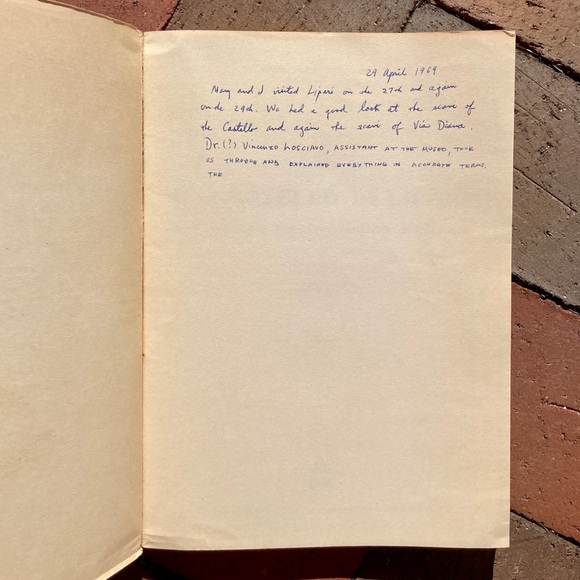 29 April 1969
Mary and I visited Lipari on the 27th and again
on the 29th. We had a good look at the scavi of
the Castello and again the scavi of Via Diana.
Dr.(?) VINCENZO LOSCIAVO, ASSISTANT AT THE MUSEO, TOOK
US THROUGH AND EXPLAINED EVERYTHING IN ACCURATE TERMS.
THE